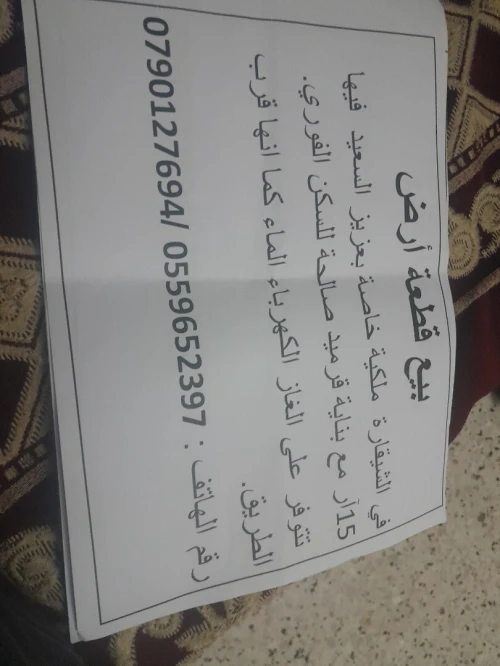 بيع قطعة أرض
في الشيقارة ملكية خاصة بعزيز السعيد فيها
15آر مع بناية قرميد صالحة للسكن الفوري.
تتوفر على الغاز الكهرباء الماء كما انها قرب
الطريق.
رقم الهاتف : 0559652397 /0790127694